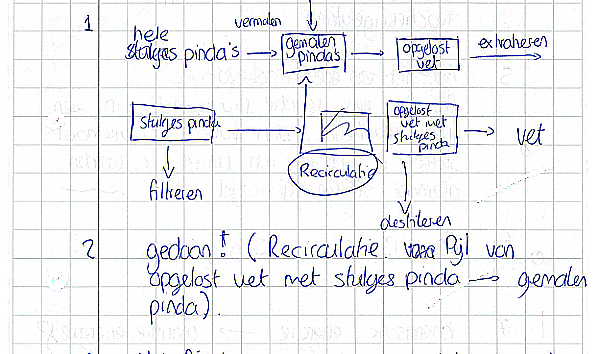 1
vermalen
hele
stukjes pinda's
gemalen
pinda's
opgelost
vet
extraheren
stukjes pinda
opgelost
vet met
stukjes
pinda
vet
Recirculatie
filtreren
destilleren
2 gedaan! (Recirculatie. Pijl van
opgelost vet met stukjes pinda → gemalen
pinda).